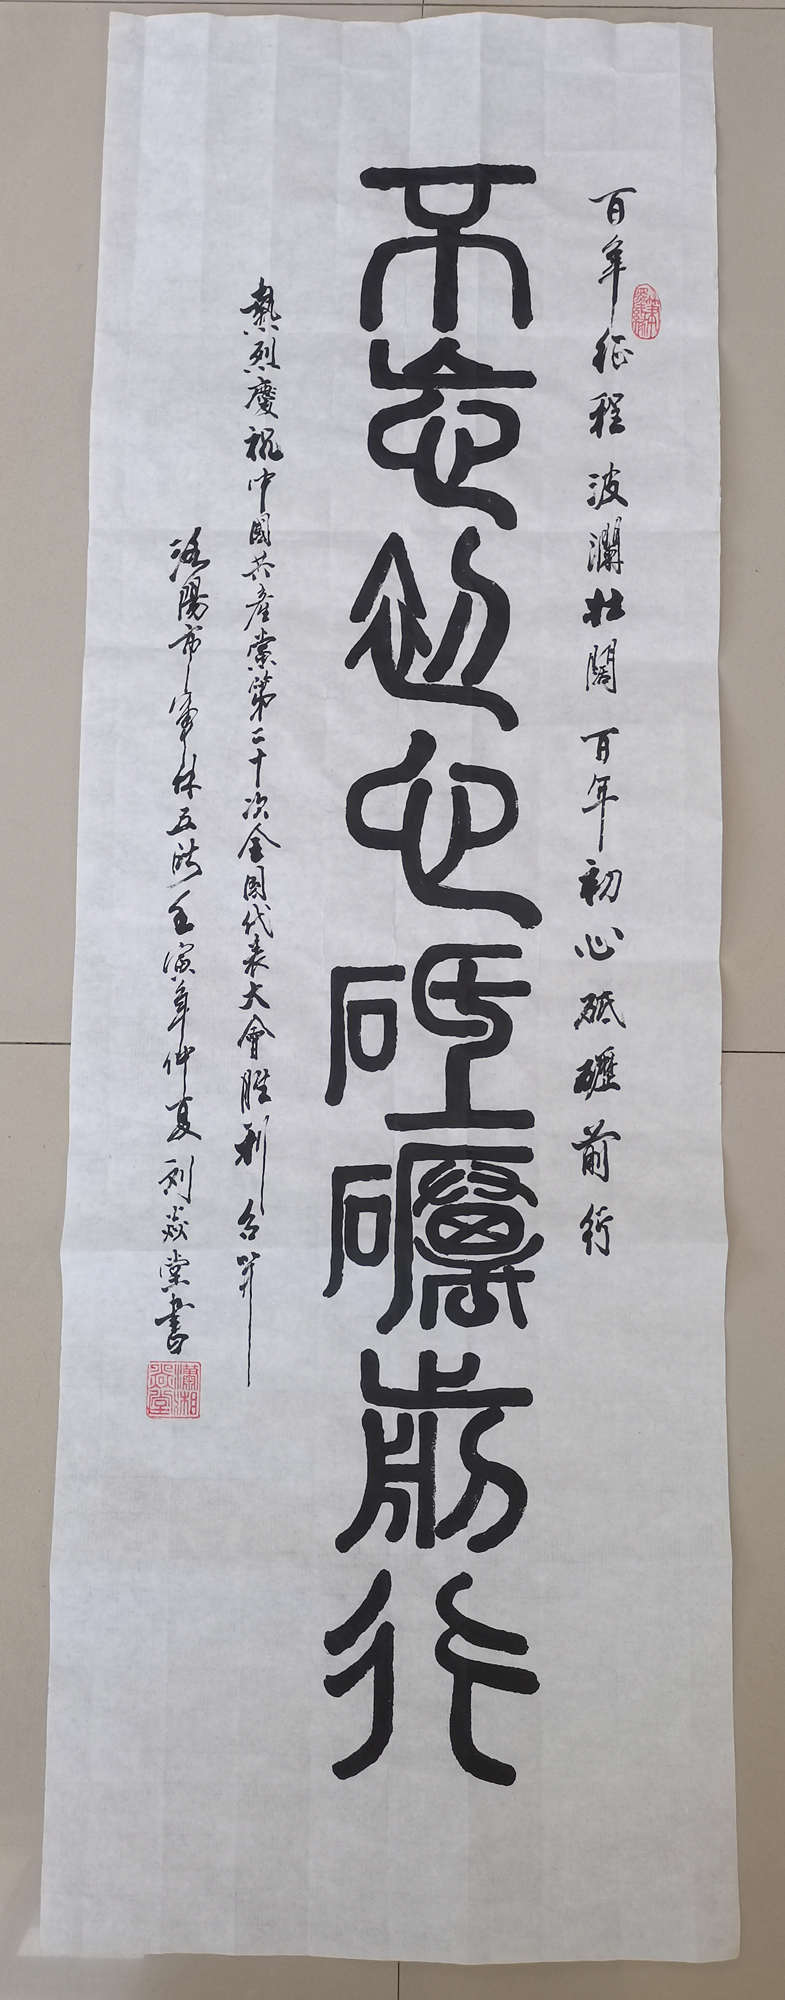 百年征程波瀾壯闊 百年初心砥礪前行
不忘初心砥礪前行
熱烈慶祝中國共產黨第二十次全國代表大會勝利召開
洛陽市軍休五所壬寅年仲夏刘焱棠書
瀟湘焱堂